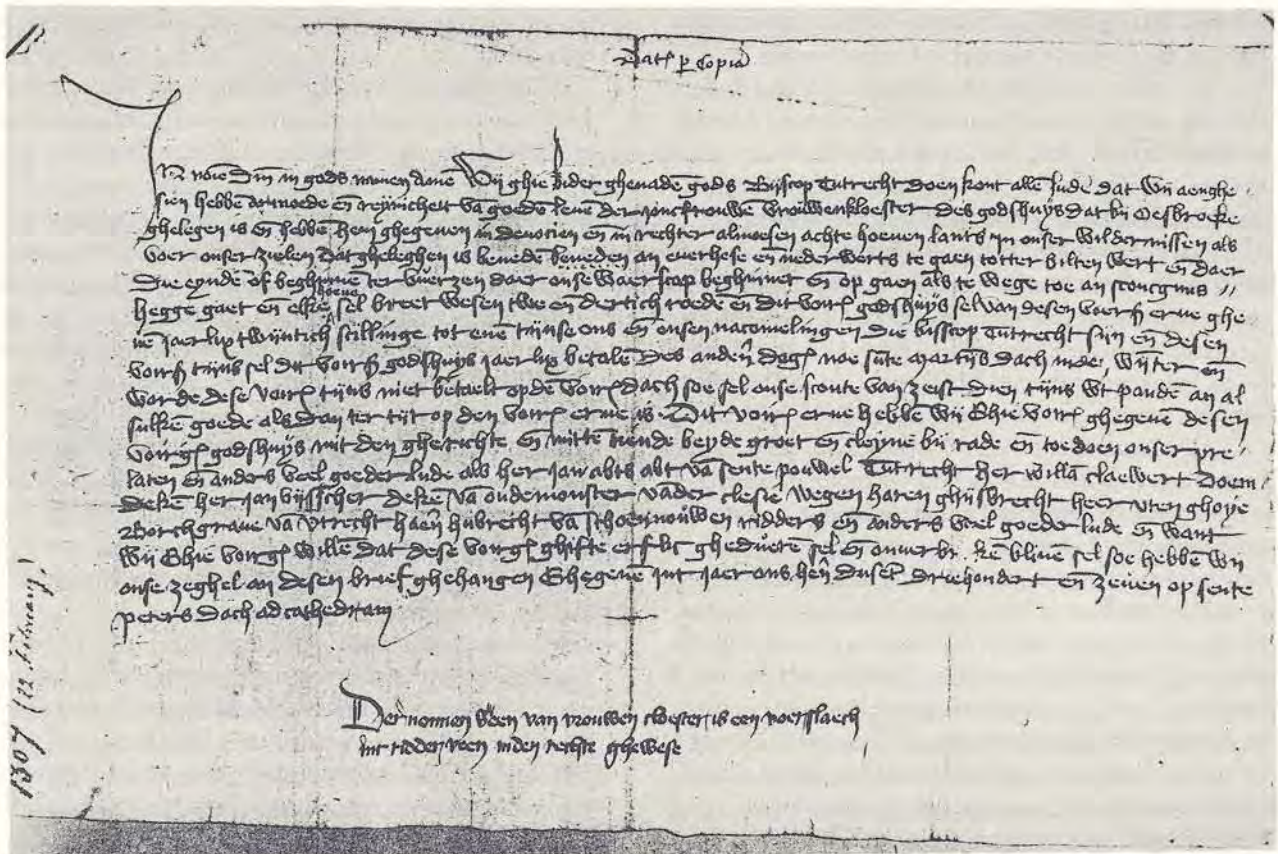 Datū p̱ Copiā
In noīe Dn̄i in gods namen amē Wij ghie bider ghenadē gods Bisscop Tutrecht doen kont allē lude dat wij aenghe
sien hebbē oetmoede en̄ reynicheit vā goedēn leuē der joncfrouwen Vrouwenkloester des godshuys dat bij Oesbroeke
ghelegen is en̄ hebbē hem ghegeuen in deuocien en̄ in rechter almoesen achte hoeuen lants in onser wildernissen als
voer onser zielen Dat gheleghen is benedē beneden an euerhese en̄ neder werts te gaen totter bilten wert en̄ daer
Die eynde of beghinnē ter vuerzen daer onse waerscap beghinnet en̄ op gaen als te wege toe an
hegge gaet en̄ elke hoeue sel breet wesen twe en̄ dertich roedē en̄ dit vorß godshuys sel van desen vorß erue ghe
uē jaerlix twijntich scillinge tot enē tijnse ons en̄ onsen nacomelingen die bisscop Tutrecht sijn en̄ desen
vorß tijns sel dit vorß godshuys jaerlix betalē Des andeñ dags nae sūte Martijns dach inden wijter en̄
worde dese vorß tijns niet betaelt opdē vorß dach soe sel onse scoute van zeist dien tijns wt pandē an al
sulken goede als dan ter tijt op den vorß erue is Dit vorß erue hebbē wij Ghie vorß ghegeuē desen
vorß godshuys mit den gherichte en̄ mittē tiende beyde groet en̄ cleyne bij rade en̄ toedoen onser pre
laten en̄ anders veel goeder lude als her jan abts abt vā sente pouwel Tutrecht her willā claewert Doem
dekē her jan visscher dekē vā oudemonster vander clesie wegen haren ghijsbrecht heer vten ghoye
Borchgraue vā vtrecht haeñ hubrecht vā schoennouwen ridders en̄ anders veel goeder lude en̄ want
wij Ghie vorß willē dat dese vorß ghifte erflic ghedurē sel en̄ onuerbr. kē bliuē sel soe hebbē wij
onse zeghel an desen brief ghehangen Ghegeuē int jaer ons heñ dusēt driehondert en̄ zeuen op sente
peters dach ad cathedram
Der nonnen veen van vrouwen cloester is een voerslaech
int ridder veen inden rechte ghewese
1307 (22 Februarij)